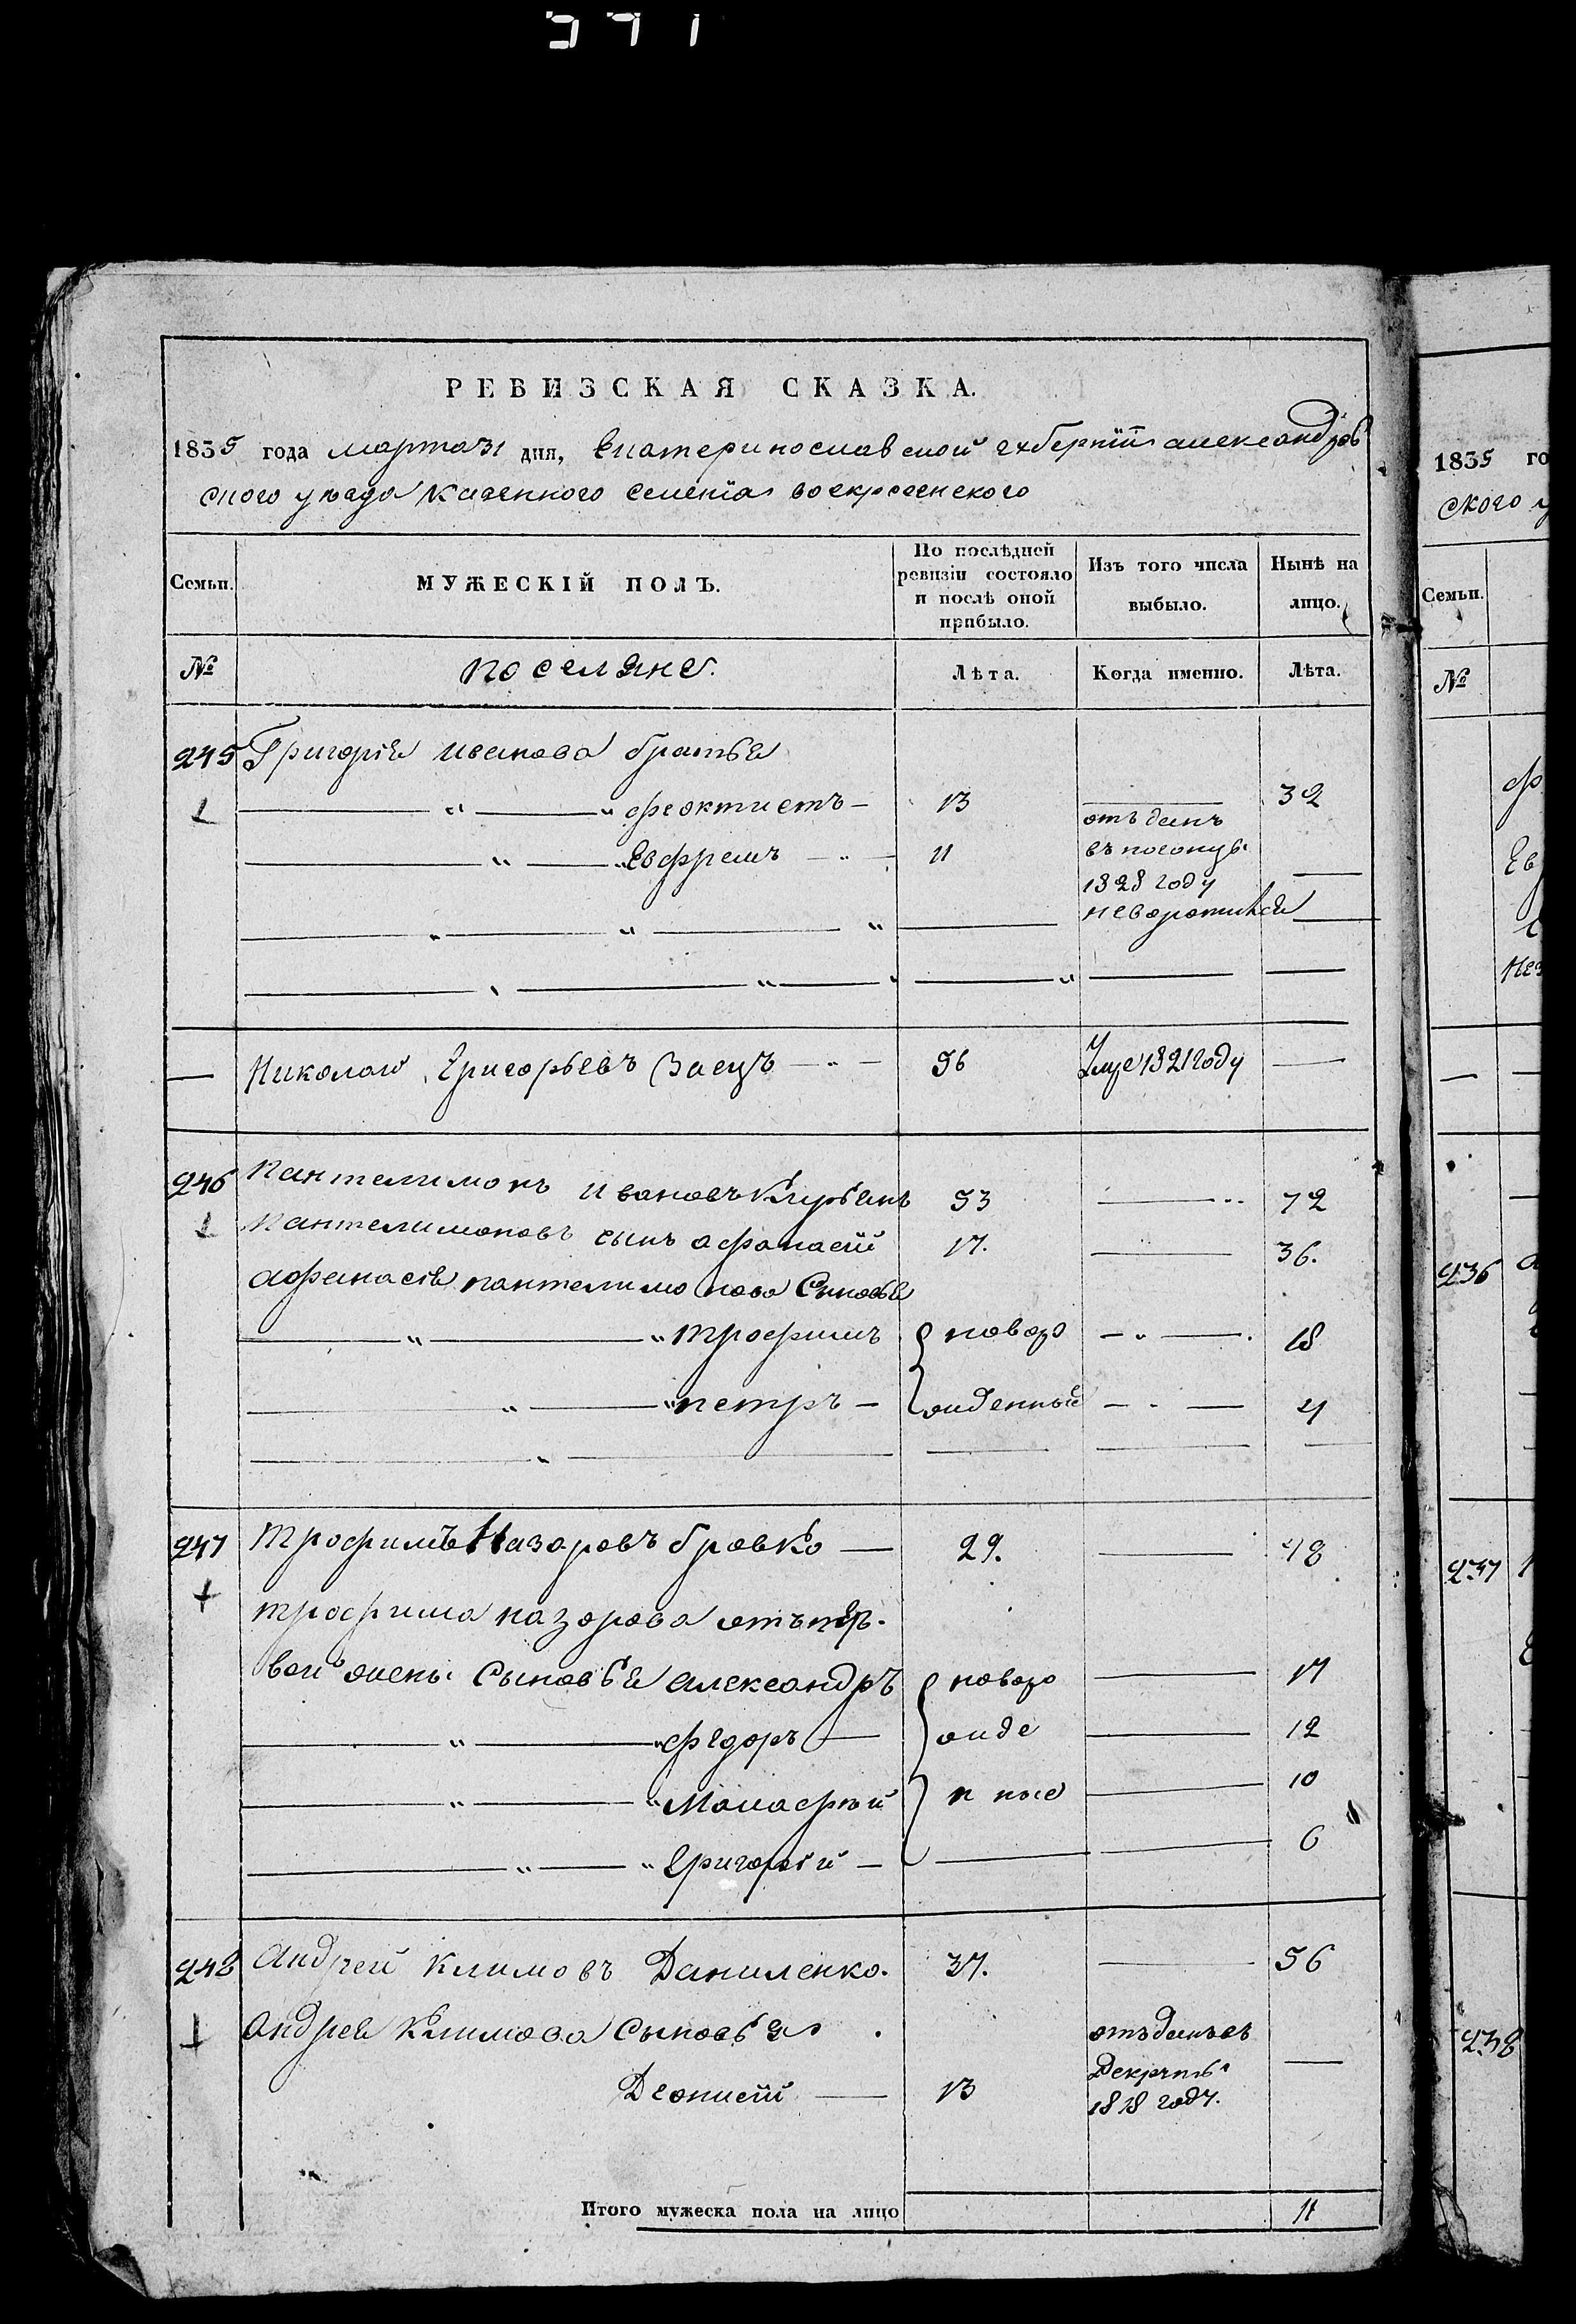 РЕВИЗСКАЯ СКАЗКА.
1835 года марта 31 дня, Екатеринославской губернїи александров
ского уезда казенного селенїя воскресенского
Семьи.
МУЖЕСКІЙ ПОЛЪ.
По послѣдней ревизіи состояло и послѣ оной прибыло.
Изъ того числа выбыло.
Нынѣ на лицо.
№
поселяне.
Лѣта.
Когда именно.
Лѣта.
245 Григорїя иванова братья
" " феоктистъ 13 32
" " Евфремъ " 11 отъданъ
въ погонцы
1828 году
неворотился
Николай Григорьевъ Заецъ 56 1821 году
246 пантелимонъ ивановъ 53 72
пантелимоновъ сынъ афанасїй 17. 36.
афанасїя пантелимонова Сыновья
" " трофимъ новоро 18
" " петръ жденные 4
247 трофимъ Назаровъ бровко 29. 48
трофима назарова отъпер.
вой жены Сыновья александръ новоро 17
" " федоръ жде 12
" " н ные 10
" " Григорїй 6
248 андрей климовъ Даниленко. 37. 56
андрея климова Сыновья
Деонисїй 13 отъданъвъ
рекруты
1818 году.
Итого мужеска пола на лицо 11
1835 го
ского у
Семьи.
№
ф
Ев
236
237
238